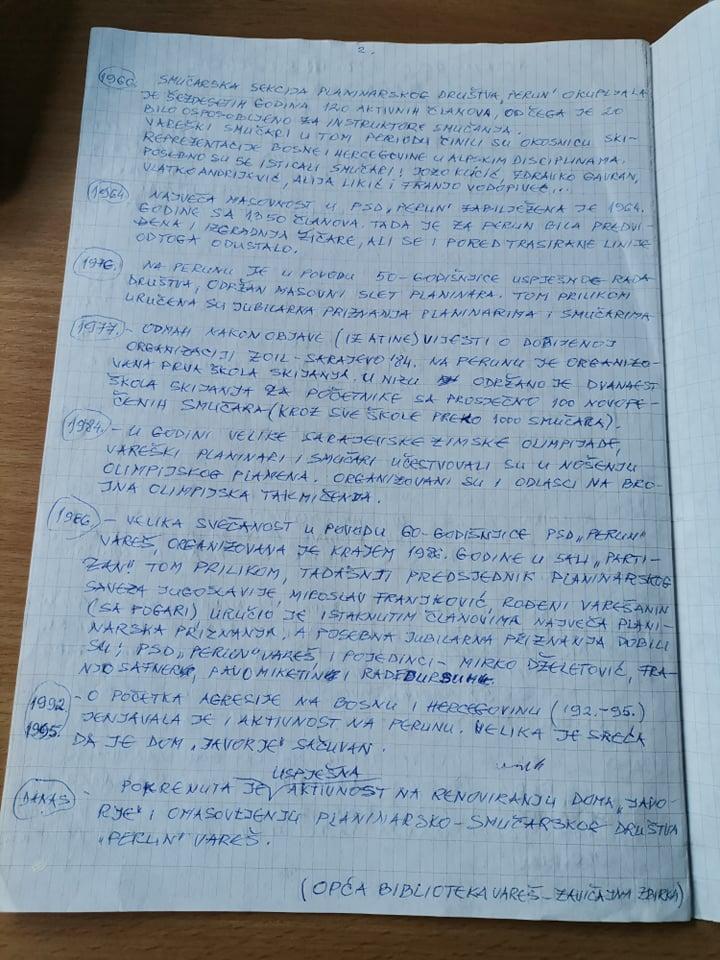 2.
1960. SMUČARSKA SEKCIJA PLANINARSKOG DRUŠTVA „PERUN" OKUPLJALA
JE ŠEZDESETIH GODINA 120 AKTIVNIH ČLANOVA, OD ČEGA JE 20
BILO OSPOSOBLJENO ZA INSTRUKTORE SMUČANJA.
VAREŠKI SMUČARI U TOM PERIODU ČINILI SU OKOSNICU SKI-
REPREZENTACIJE BOSNE I HERCEGOVINE U ALPSKIM DISCIPLINAMA.
POSEBNO SU SE ISTICALI SMUČARI: JOZO KLIČIĆ, ZDRAVKO GAVRAN,
VLATKO ANDRIJEVIĆ, ALIJA LIKIĆ I FRANJO VODOPIVEC...
1964 NAJVEĆA MASOVNOST U PSD „PERUN" ZABILJEŽENA JE 1964.
GODINE SA 1350 ČLANOVA. TADA JE ZA PERUN BILA PREDVI-
ĐENA I IZGRADNJA ŽIČARE, ALI SE I PORED TRASIRANE LINIJE
OD TOGA ODUSTALO.
1976. NA PERUNU JE U POVODU 50-GODIŠNJICE USPJEŠNOG RADA
DRUŠTVA, ODRŽAN MASOVNI SLET PLANINARA. TOM PRILIKOM
URUČENA SU JUBILARNA PRIZNANJA PLANINARIMA I SMUČARIMA
1977. - ODMAH NAKON OBJAVE (IZ ATINE) VIJESTI O DOBIJENOJ
ORGANIZACIJI ZOIL-SARAJEVO '84. NA PERUNU JE ORGANIZO-
VANA PRVA ŠKOLA SKIJANJA. U NIZU ODRŽANO JE DVANAEST
ŠKOLA SKIJANJA ZA POČETNIKE SA PROSJEČNO 100 NOVOPE-
ČENIH SMUČARA (KROZ SVE ŠKOLE PREKO 1000 SMUČARA).
1984. - U GODINI VELIKE SARAJEVSKE ZIMSKE OLIMPIJADE,
VAREŠKI PLANINARI I SMUČARI UČESTVOVALI SU U NOŠENJU
OLIMPIJSKOG PLAMENA. ORGANIZOVANI SU I ODLASCI NA BRO-
JNA OLIMPIJSKA TAKMIČENJA.
1986. - VELIKA SVEČANOST U POVODU 60-GODIŠNJICE PSD „PERUN"
VAREŠ, ORGANIZOVANA JE KRAJEM 1986. GODINE U SALI „PARTI-
ZAN". TOM PRILIKOM, TADAŠNJI PREDSJEDNIK PLANINARSKOG
SAVEZA JUGOSLAVIJE MIROSLAV FRANJKOVIĆ, ROĐENI VAREŠANIN
(SA POGARI) URUČIO JE ISTAKNUTIM ČLANOVIMA NAJVEĆA PLANI-
NARSKA PRIZNANJA, A POSEBNA JUBILARNA PRIZNANJA DOBILI
SU: PSD „PERUN" VAREŠ I POJEDINCI - MIRKO DŽELETOVIĆ, FRA-
NJO SAFNER, PAVO MIKETIN I RADE
1992 - O POČETKA AGRESIJE NA BOSNU I HERCEGOVINU (192.-95.)
1995. JENJAVALA JE I AKTIVNOST NA PERUNU. VELIKA JE SREĆA
DA JE DOM „JAVORJE" SAČUVAN.
USPJEŠNA
DANAS - POKRENUTA JE AKTIVNOST NA RENOVIRANJU DOMA „JAVO-
RJE" I OMASOVLJENJU PLANINARSKO-SMUČARSKOG DRUŠTVA
„PERUN" VAREŠ.
(OPĆA BIBLIOTEKA VAREŠ - ZAVIČAJNA ZBIRKA)